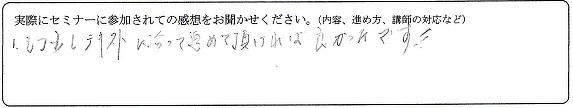 実際にセミナーに参加されての感想をお聞かせください。(内容、進め方、講師の対応など)
テキストに沿って進めて頂ければ良かったです!!